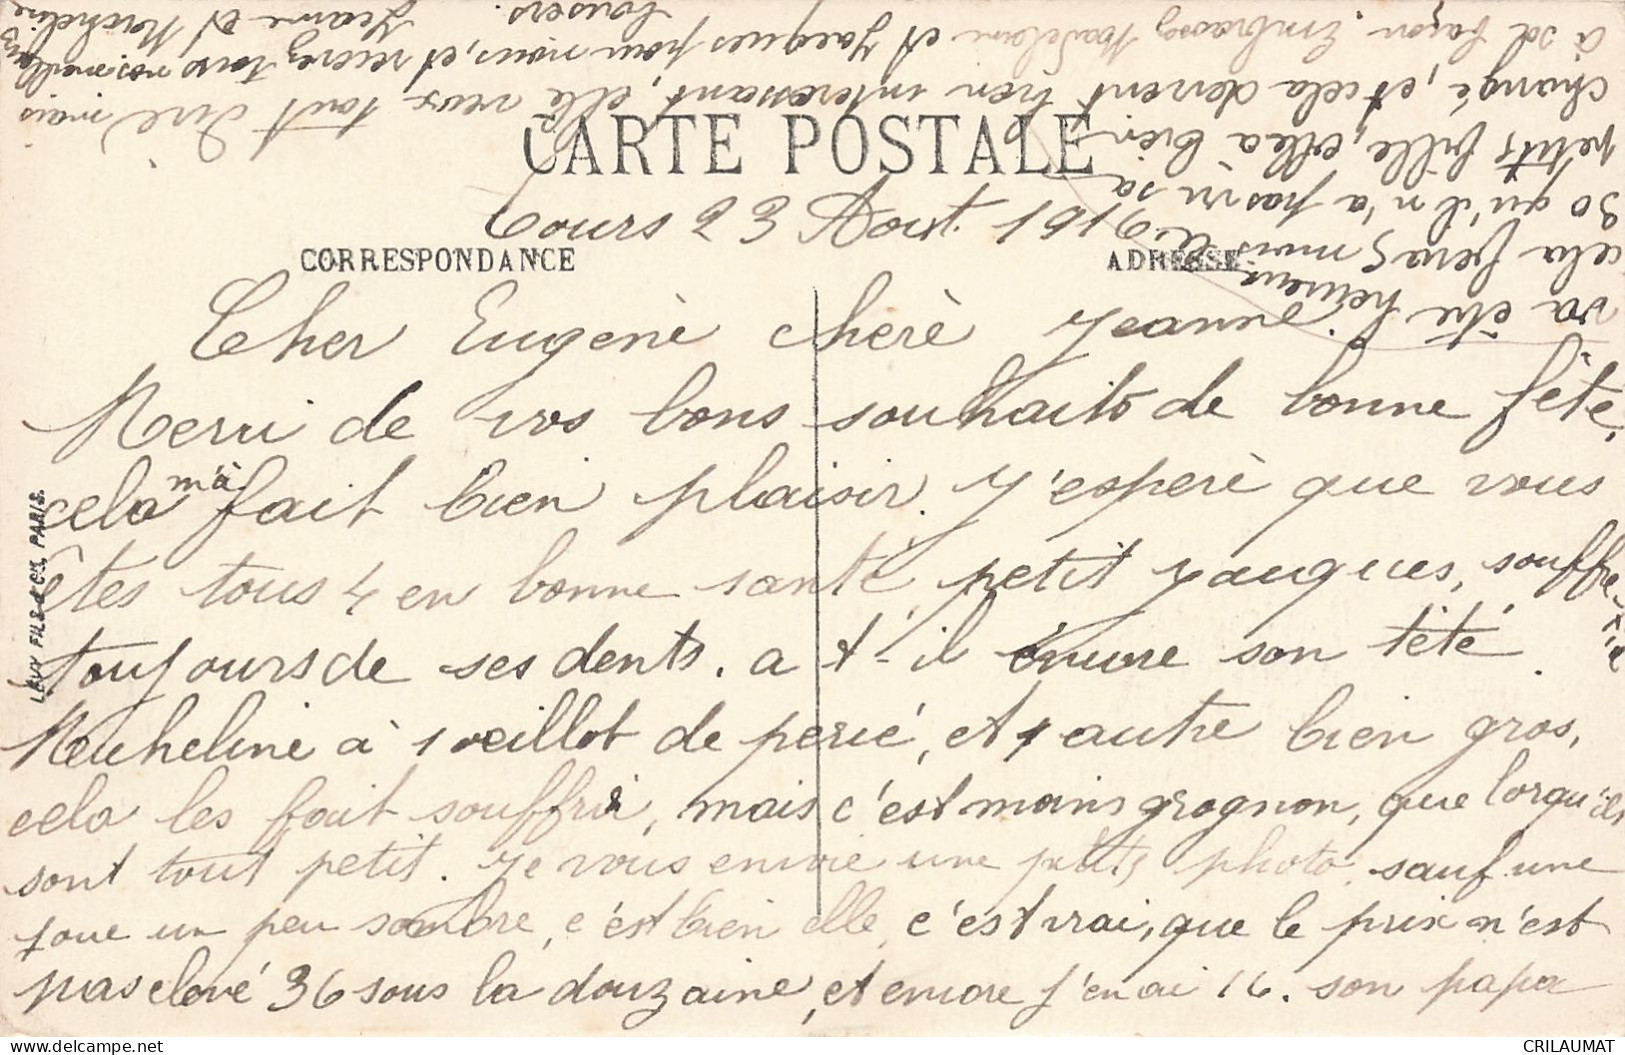 CARTE POSTALE
Tours 23 Aout 1919
CORRESPONDANCE
ADRESSE
Cher Eugène chère Jeanne
Merci de vos bons souhaits de bonne fête,
cela m'à fait bien plaisir. J'espère que vous
êtes tous 4 en bonne santé, petit Jauques, souffre-t-il
toujours de ses dents. a t-il encore son tété.
Micheline à 1 oeillot de percé, et 1 autre bien gros,
cela les fait souffrir, mais c'est moins grognon, que lorqu'ils
sont tout petit. Je vous envoie une petite photo, sauf une
joue un peu sombre, c'est bien elle, c'est vrai, que le prix n'est
pas elevé 36 sous la douzaine, et encore j'en ai 14. son papa
va être heureux
cela fera 5 mois le
30 qu'il n'a pas vu sa
petite fille, elle a bien
changé, et cela devient bien interessant, elle veux tout dire mais
à sa façon. Embrassez Madelaine et Jacques pour nous, et recevez tous nos meilleurs
baisers. Jeanne et Micheline
LÉVY FILS & CIE, PARIS.
CRILAUMAT